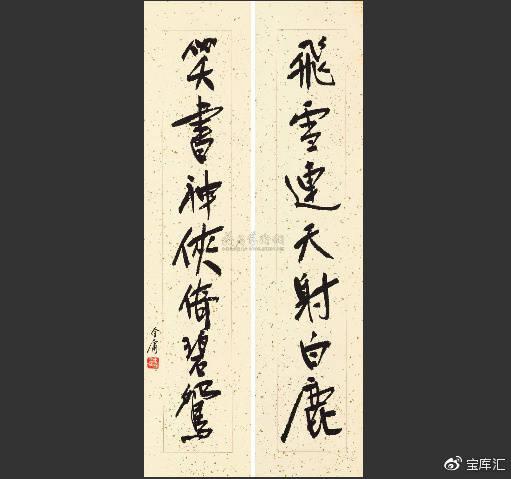 飛雪連天射白鹿
笑書神俠倚碧鴛
金庸
宝库汇